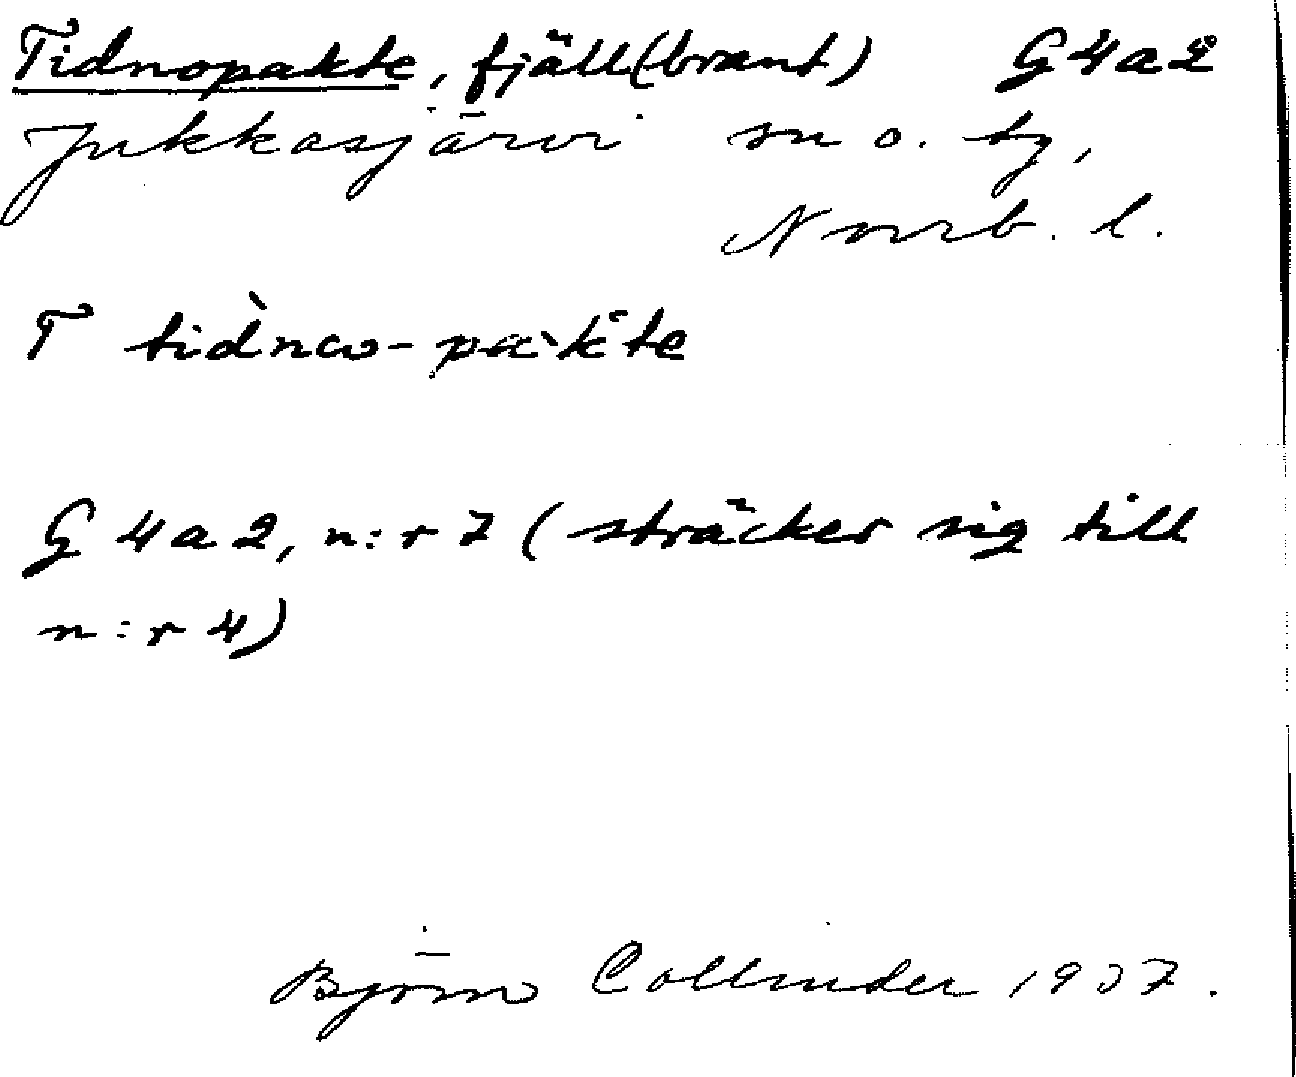 Tidnopakte, fjäll(brant) G4a2
Jukkasjärvi sn o. tg,
Norrb. l.
T
G 4 a 2, n:r 7 (sträcker sig till
n:r 4)
Björn Collinder 1937.